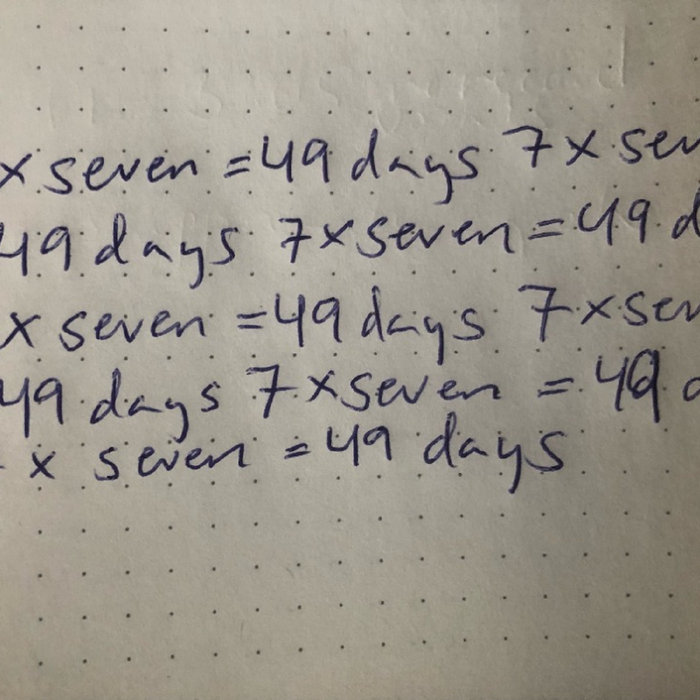 x seven = 49 days 7 x sev
49 days 7 x seven = 49 d
x seven = 49 days 7 x sev
49 days 7 x seven = 49 d
x seven = 49 days